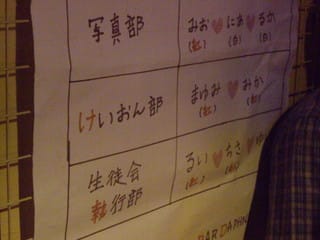 写真部
みお♥にぁ♥るか
(紅) (白) (白)
けいおん部
まゆみ♥みか
(紅) (紅)
生徒会
執行部
るい♥ちさ♥ゆ
BAR DAPHN